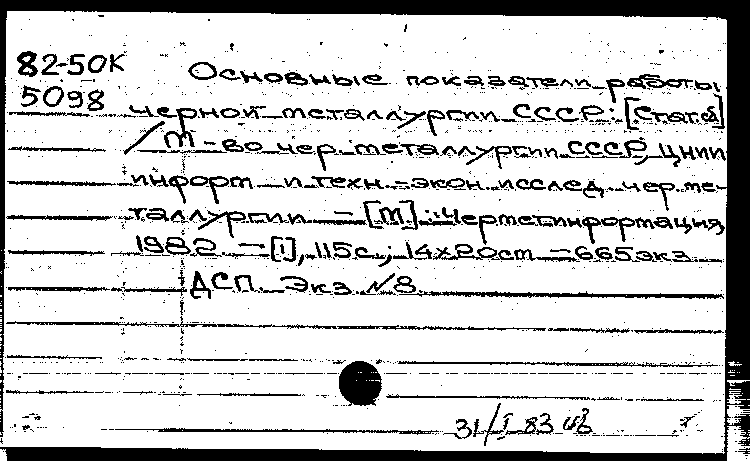 82-50К
5098
Основные показатели работы
черной металлургии СССР: [Стат.сб]
/ М-во чер. металлургии СССР, ЦНИИ
информ. и техн.-экон. исслед. чер. ме-
таллургии. — [М]: Черметинформация,
1982. — [1], 115с.; 14х20см — 665экз.
ДСП. Экз №8.
31/I 83